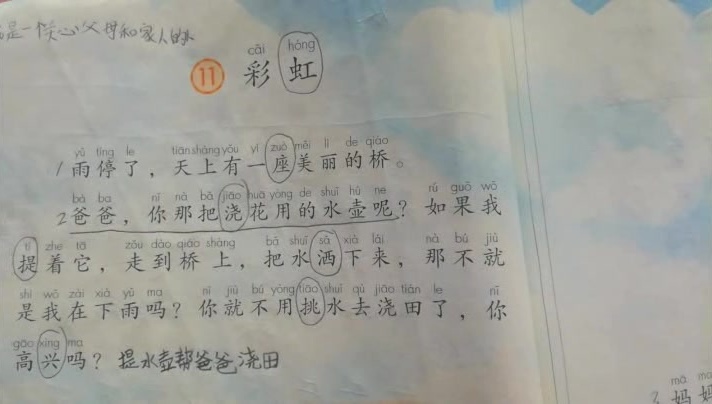 是一个关心父母和家人的
cǎi hóng
11 彩虹
yǔ tíng le tiān shàng yǒu yí zuò měi lì de qiáo
1雨停了，天上有一座美丽的桥。
bà ba nǐ nà bǎ jiāo huā yòng de shuǐ hú ne rú guǒ wǒ
2爸爸，你那把浇花用的水壶呢？如果我
tí zhe tā zǒu dào qiáo shàng bǎ shuǐ sǎ xià lái nà bú jiù
提着它，走到桥上，把水洒下来，那不就
shì wǒ zài xià yǔ ma nǐ jiù bú yòng tiāo shuǐ qù jiāo tián le nǐ
是我在下雨吗？你就不用挑水去浇田了，你
gāo xìng ma
高兴吗？提水壶帮爸爸浇田
mā
3 妈妈